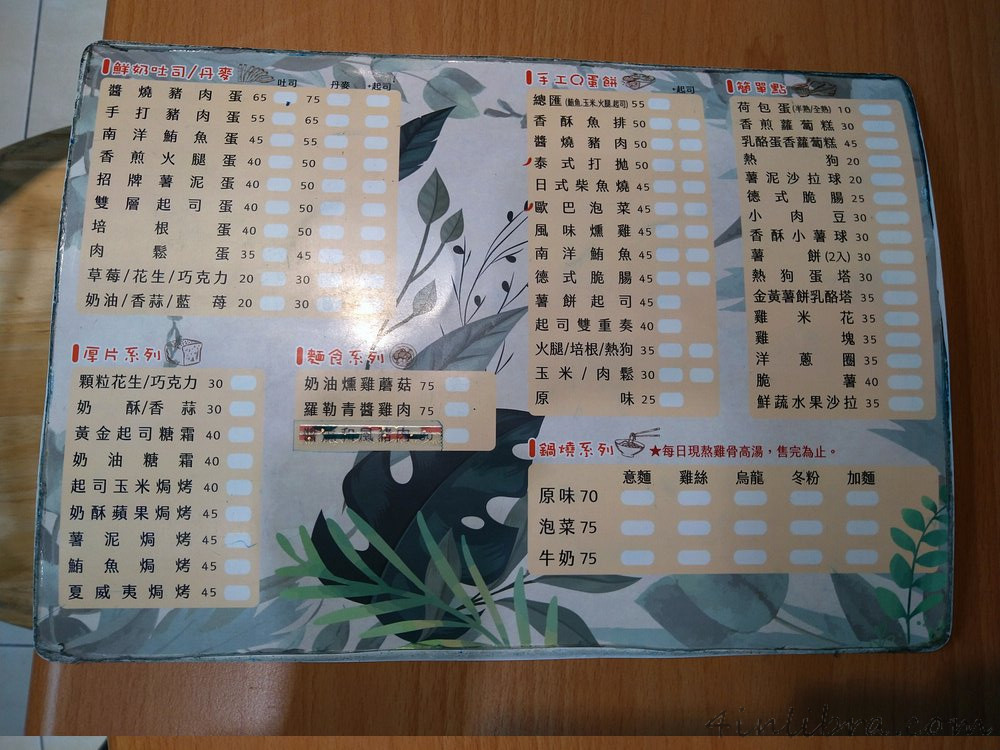 鮮奶吐司/丹麥
吐司 丹麥 +起司
醬燒豬肉蛋 65 75
手打豬肉蛋 55 65
南洋鮪魚蛋 45 55
香煎火腿蛋 40 50
招牌薯泥蛋 40 50
雙層起司蛋 40 50
培根蛋 40 50
肉鬆蛋 35 45
草莓/花生/巧克力 20 30
奶油/香蒜/藍莓 20 30
厚片系列
顆粒花生/巧克力 30
奶酥/香蒜 30
黃金起司糖霜 40
奶油糖霜 40
起司玉米焗烤 40
奶酥蘋果焗烤 45
薯泥焗烤 45
鮪魚焗烤 45
夏威夷焗烤 45
麵食系列
奶油燻雞蘑菇 75
羅勒青醬雞肉 75
手工Q蛋餅
+起司
總匯(鮪魚.玉米.火腿.起司) 55
香酥魚排 50
醬燒豬肉 50
泰式打拋 50
日式柴魚燒 45
歐巴泡菜 45
風味燻雞 45
南洋鮪魚 45
德式脆腸 45
薯餅起司 45
起司雙重奏 40
火腿/培根/熱狗 35
玉米/肉鬆 30
原味 25
簡單點
荷包蛋(半熟/全熟) 10
香煎蘿蔔糕 30
乳酪蛋香蘿蔔糕 45
熱狗 20
薯泥沙拉球 20
德式脆腸 25
小肉豆 30
香酥小薯球 30
薯餅(2入) 30
熱狗蛋塔 30
金黃薯餅乳酪塔 35
雞米花 35
雞塊 35
洋蔥圈 35
脆薯 40
鮮蔬水果沙拉 35
鍋燒系列
★每日現熬雞骨高湯，售完為止。
意麵 雞絲 烏龍 冬粉 加麵
原味 70
泡菜 75
牛奶 75
4inlibra.com